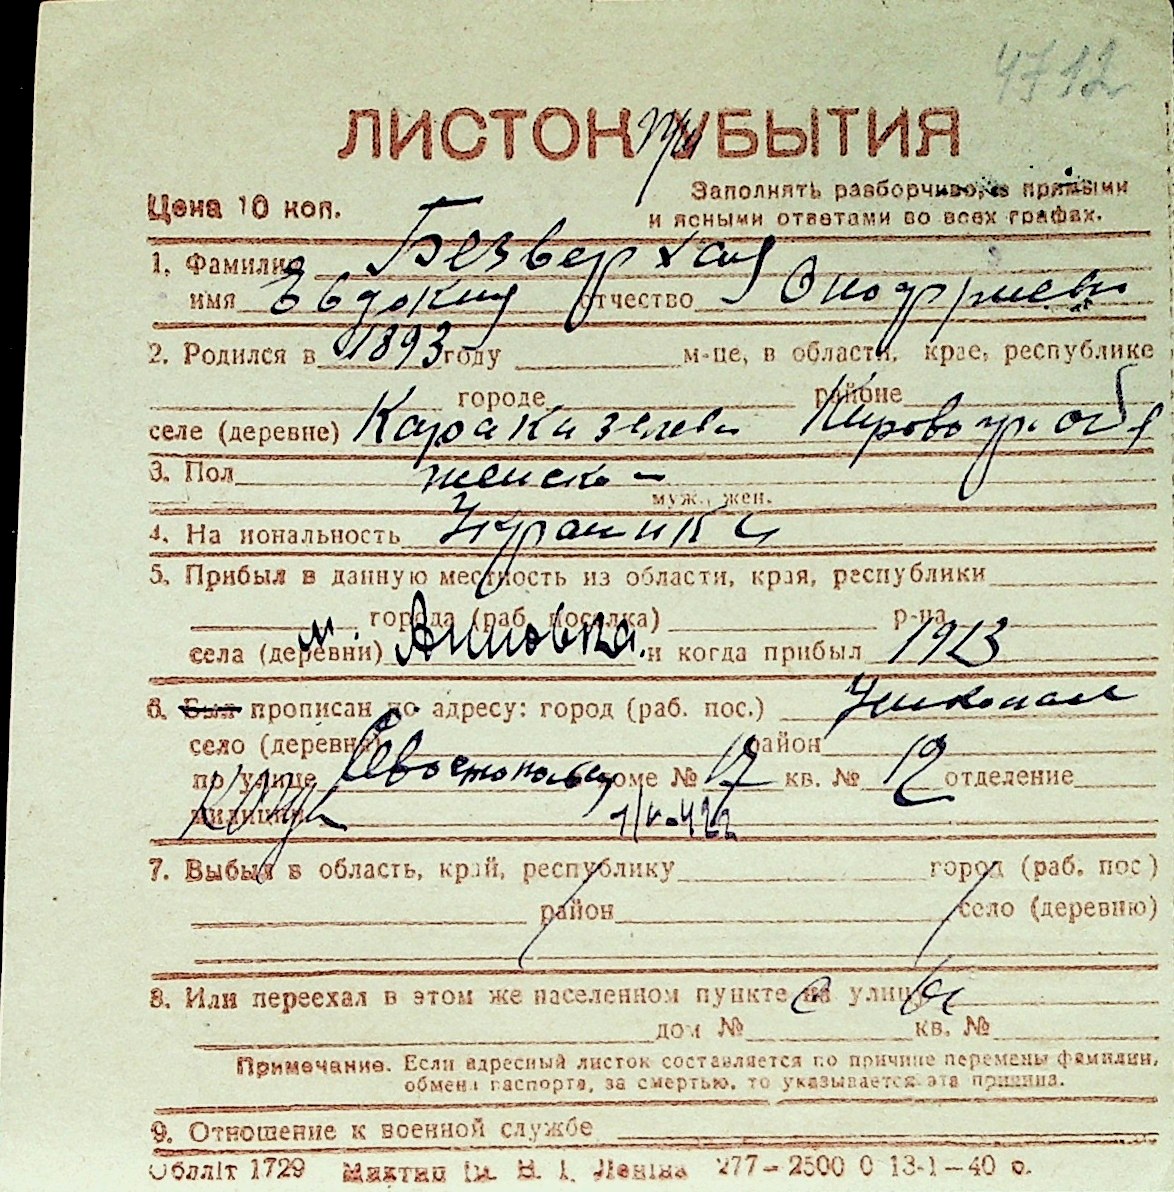 4712
ЛИСТОК при УБЫТИЯ
Цена 10 коп.
Заполнять разборчиво, с прямыми
и ясными ответами во всех графах.
1. Фамилия Безверхая
имя Евдокия отчество Онофриевн
2. Родился в 1893 году м-це, в области, крае, республике
городе районе
селе (деревне) Каракизелеви Кировогр. обл
3. Пол женск
муж., жен.
4. На иональность Украинка
5. Прибыл в данную местность из области, края, республики
города (раб. поселка) р-на
села (деревни) м. Анновка. и когда прибыл 1913
6. Был прописан по адресу: город (раб. пос.)
село (деревня) район
по улице Севастопольск доме № 17 кв. № 12 отделение
милиции
7. Выбыл в область, край, республику город (раб. пос)
район село (деревню)
8. Или переехал в этом же населенном пункте на улицу
дом № кв. №
Примечание. Если адресный листок составляется по причине перемены фамилии,
обмена паспорта, за смертью, то указывается эта причина.
9. Отношение к военной службе
Облліт 1729 Миктип ім. В. І. Леніна 277–2500 0 13-1–40 р.